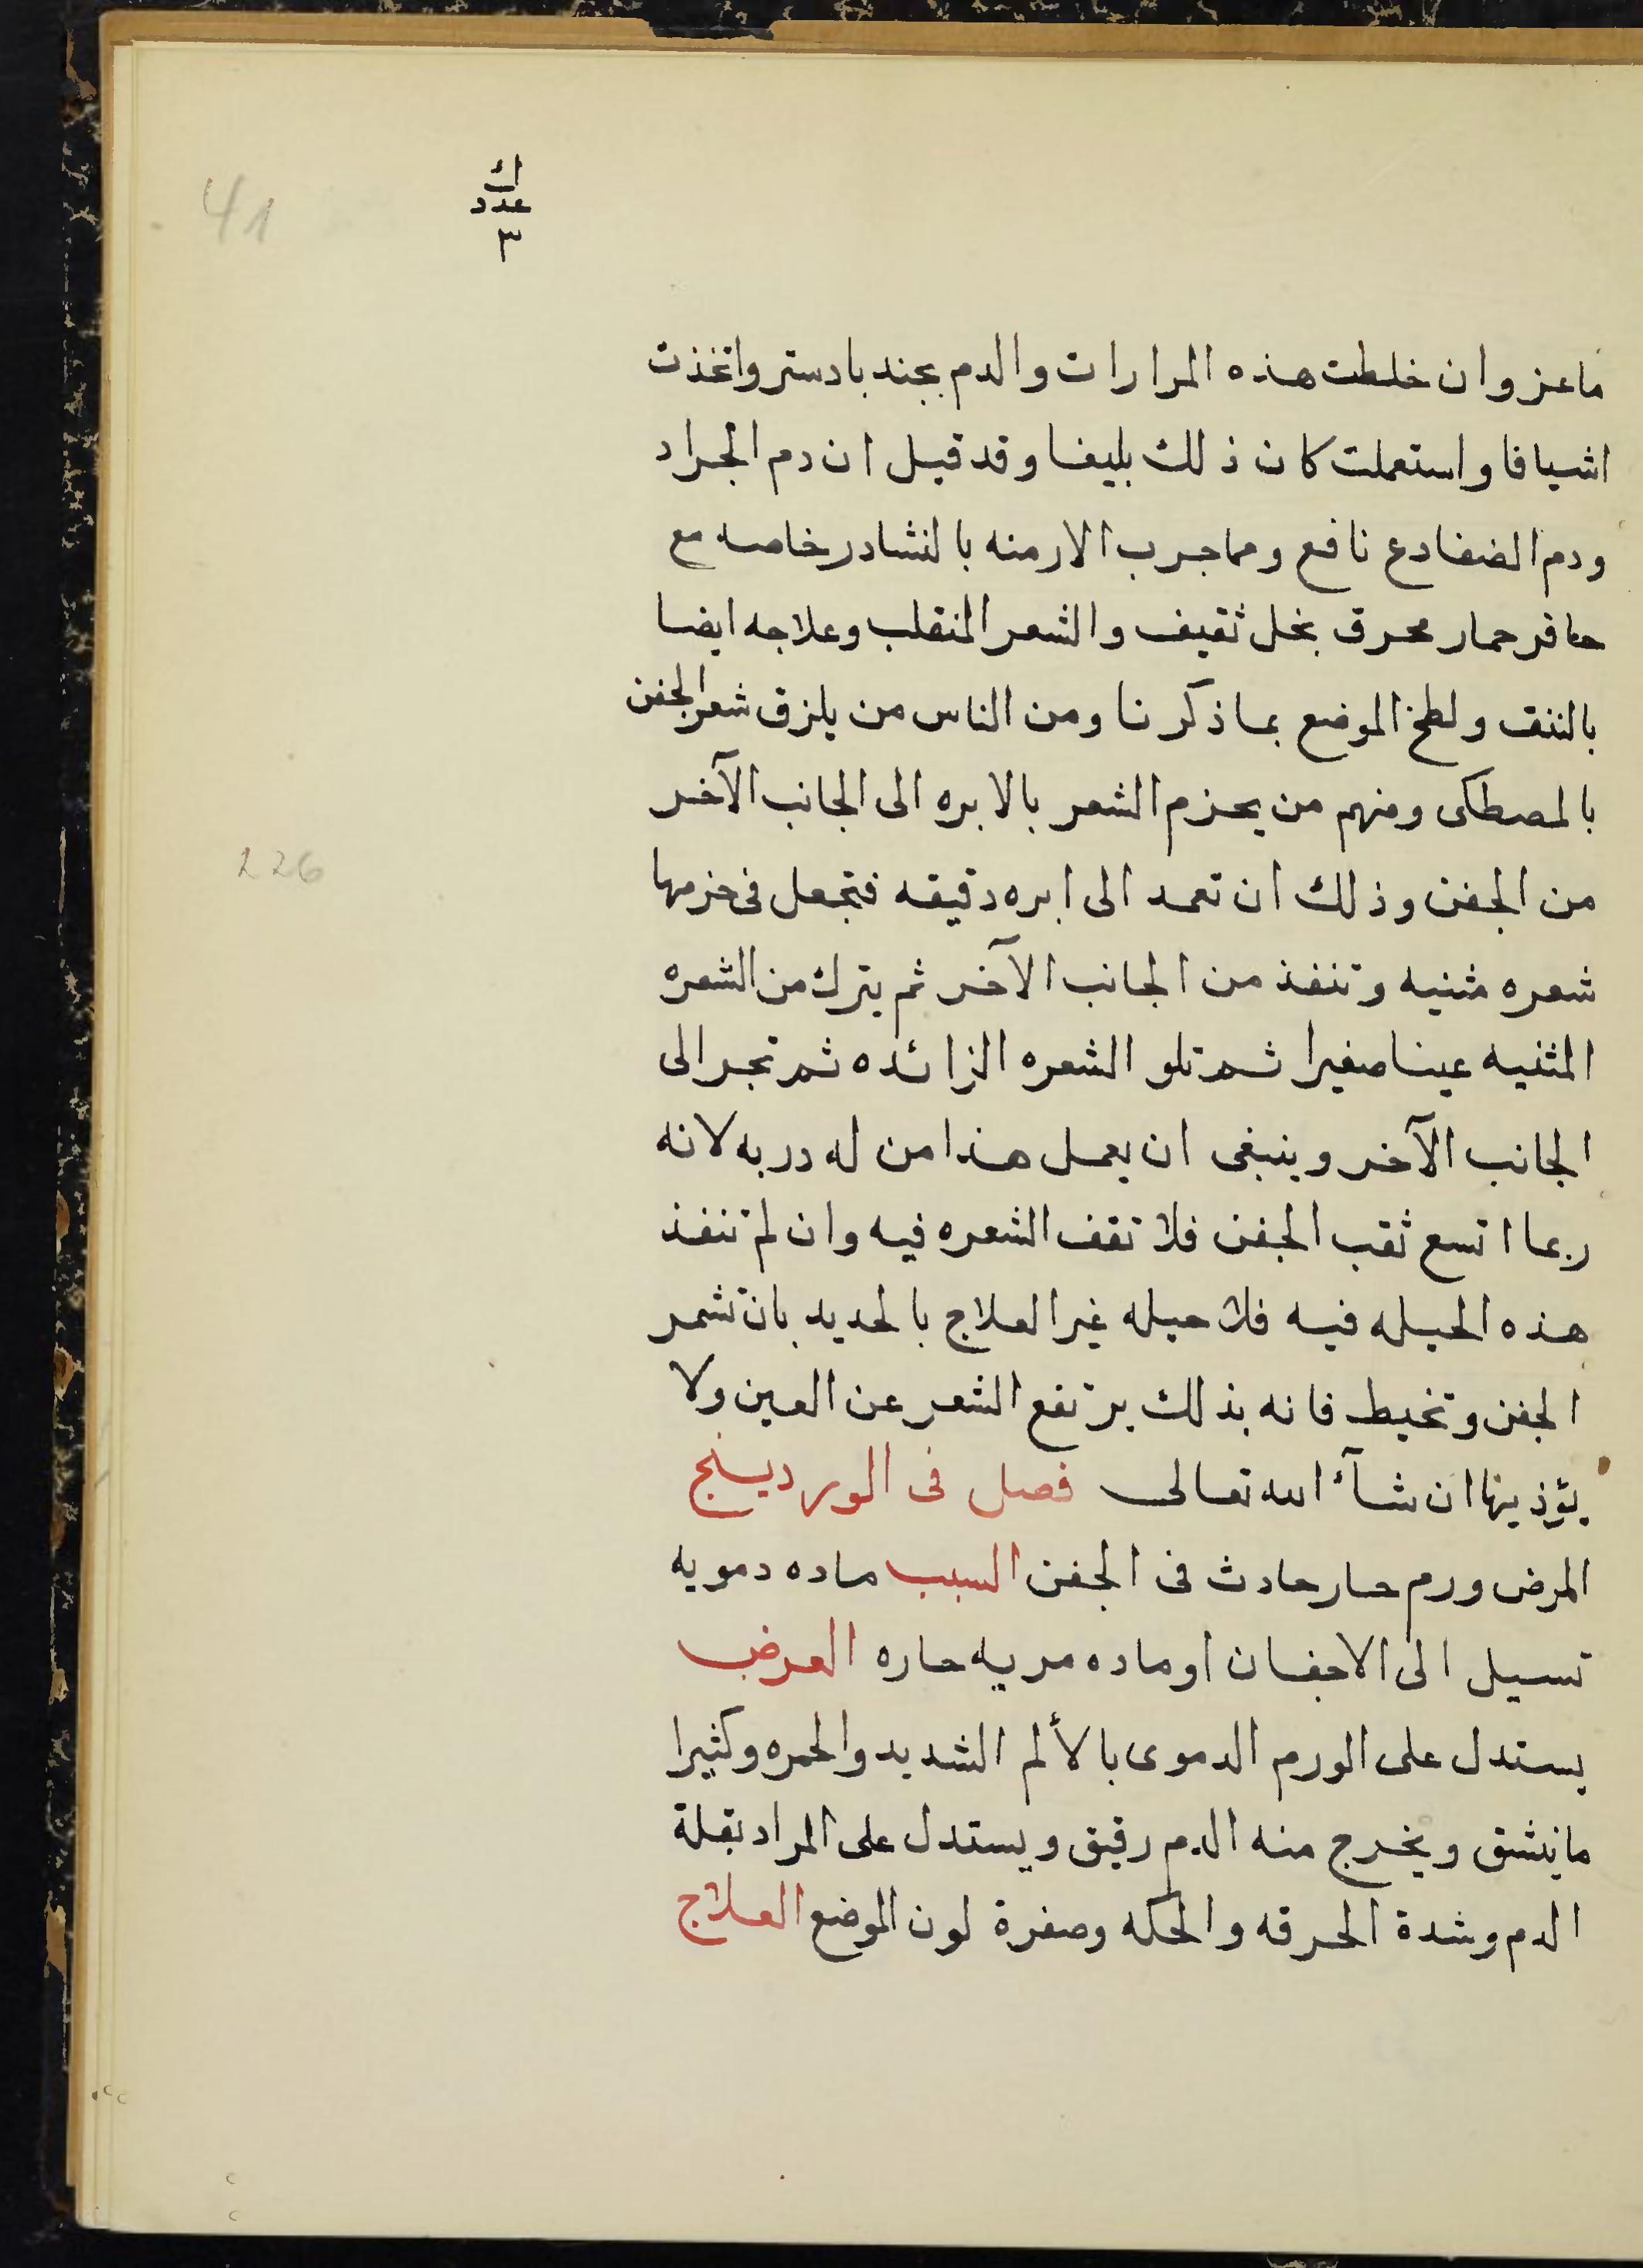 41
ك
عدد
٣
ماعز وان خلطت هذه المرارات والدم بجند بادستر واتخذت
اشيافا واستعملت كان ذلك بليغا وقد قيل ان دم الجراد
ودم الضفادع نافع ومما جرب الارمنه بالنشادر خاصه مع
حافر حمار محرق بخل ثقيف والشعر المنقلب وعلاجه ايضا
بالنتف ولطخ الموضع بما ذكرنا ومن الناس من يلزق شعر الجفن
بالمصطكى ومنهم من يحزم الشعر بالابره الى الجانب الآخر
من الجفن وذلك ان تعمد الى ابره دقيقه فتجعل فى خرمها
شعره مثنيه وتنفذ من الجانب الآخر ثم يترك من الشعره
المثنيه عينا صغيرا ثم تلو الشعره الزائده ثم تجر الى
الجانب الآخر وينبغى ان يعمل هذا من له دربه لانه
ربما اتسع ثقب الجفن فلا تقف الشعره فيه وان لم تنفذ
هذه الحيله فيه فلا حيله غير العلاج بالحديد بان تشمر
الجفن وتخيط فانه بذلك يرتفع الشعر عن العين ولا
يؤذينها ان شآء الله تعالى فصل فى الوردينج
المرض ورم حار حادث فى الجفن السبب ماده دمويه
تسيل الى الاجفان او ماده مريه حاره العرض
يستدل على الورم الدموى بالألم الشديد والحمره وكثيرا
ما ينشق ويخرج منه الدم رقيق ويستدل على المراد بقلة
الدم وشدة الحرقه والحكه وصفرة لون الموضع العلاج
226